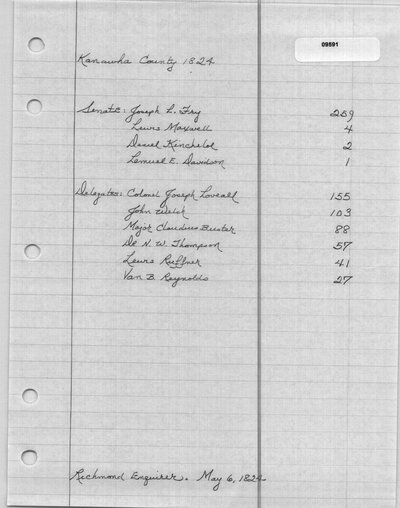 09591
Kanawha County 1824
Senate: Joseph L. Fry 259
Lewis Maxwell 4
Daniel Kincheloe 2
Lemuel E. Davidson 1
Delegates: Colonel Joseph Lovell 155
John Welch 103
Major Claudius Buster 88
Dr N. W. Thompson 57
Lewis Ruffner 41
Van B. Reynolds 27
Richmond Enquirer. May 6, 1824